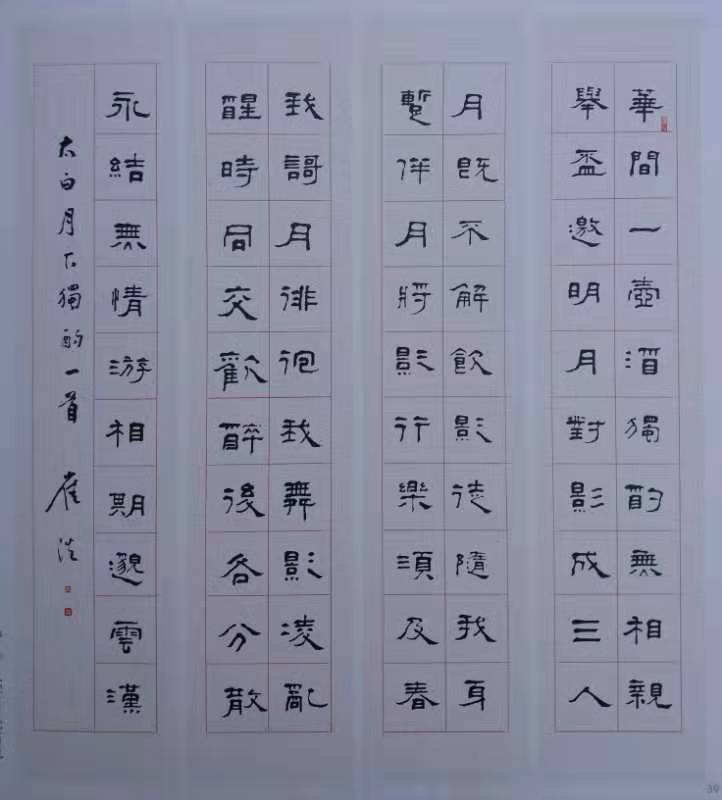 華間一壺酒獨酌無相親
舉盃邀明月對影成三人
月既不解飲影徒隨我身
暫伴月將影行樂須及春
我謌月徘徊我舞影凌亂
醒時同交歡醉後各分散
永結無情游相期邈雲漢
太白月下獨酌一首 崔